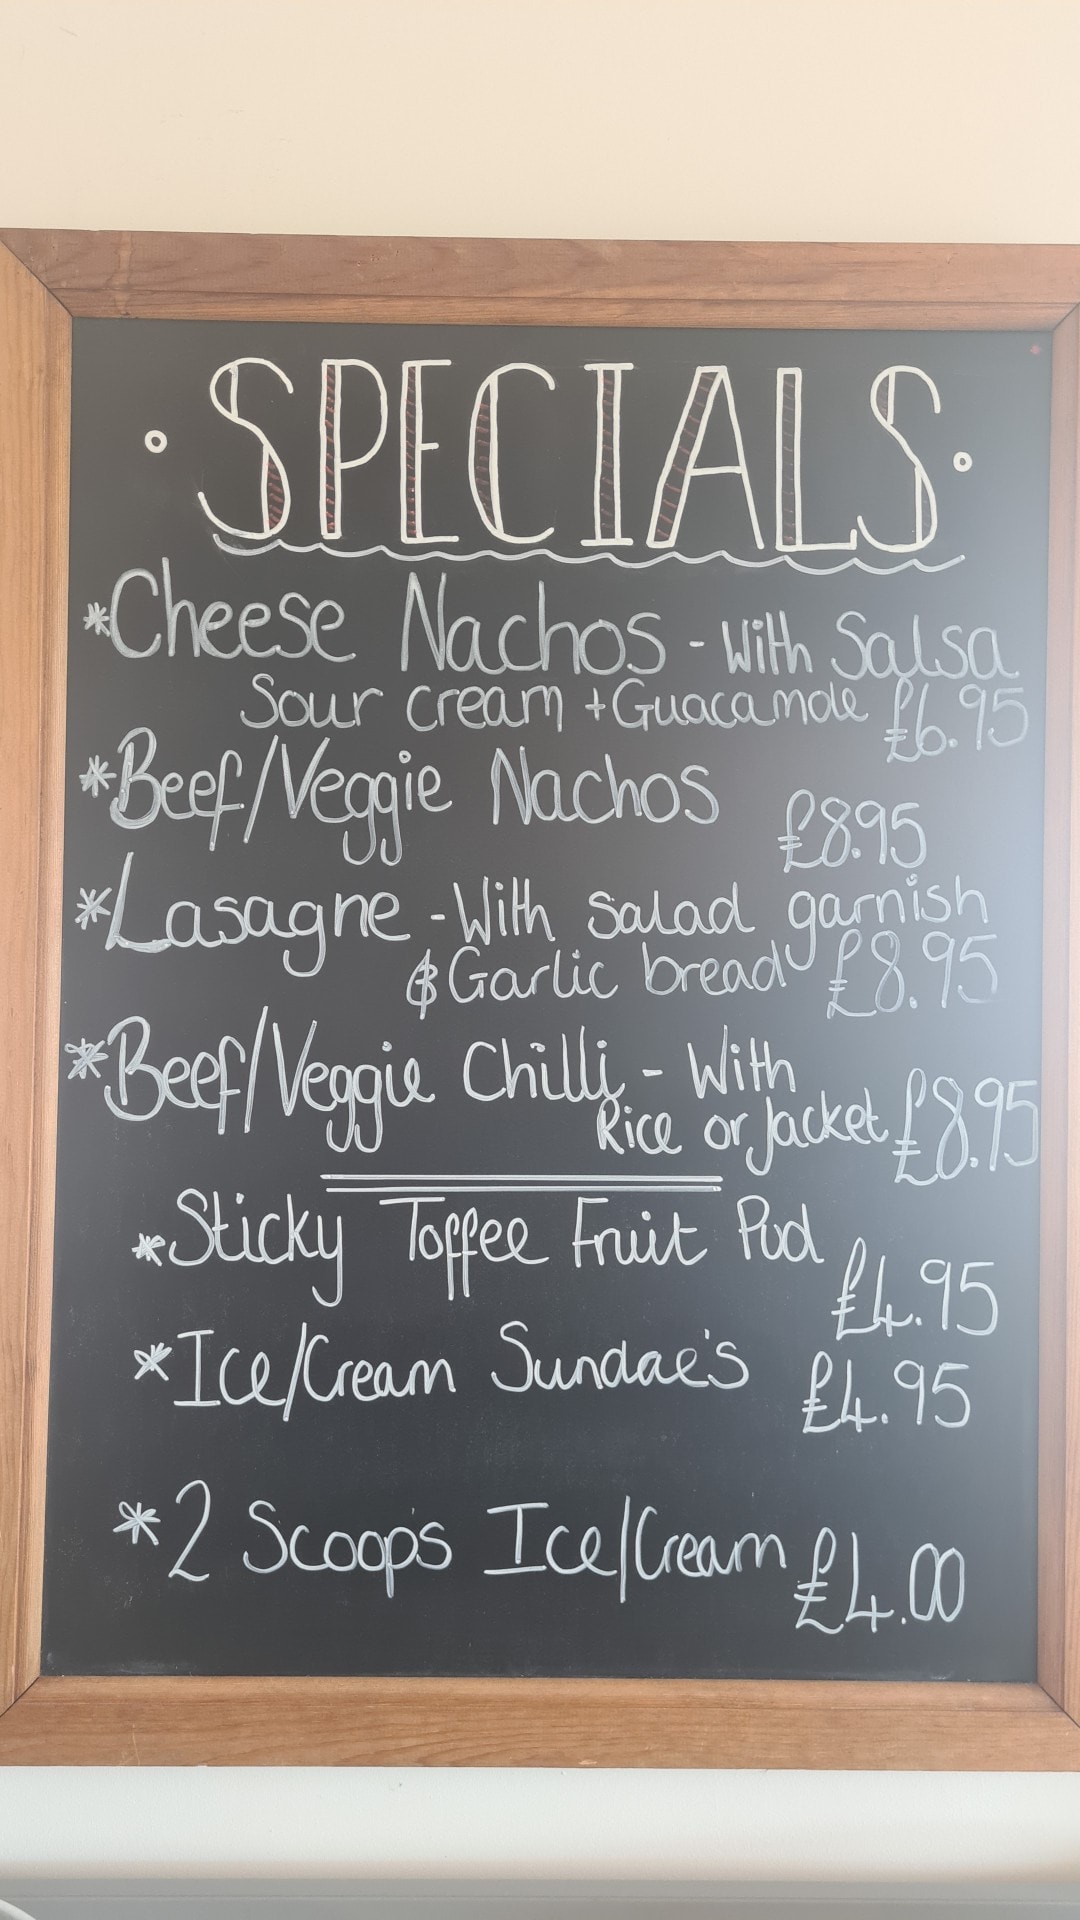 SPECIALS
*Cheese Nachos - With Salsa
Sour cream + Guacamole £6.95
*Beef/Veggie Nachos £8.95
*Lasagne - With salad garnish
& Garlic bread £8.95
*Beef/Veggie Chilli - With
Rice or Jacket £8.95
*Sticky Toffee Fruit Pud £4.95
*Ice/Cream Sundae's £4.95
*2 Scoop's Ice/Cream £4.00